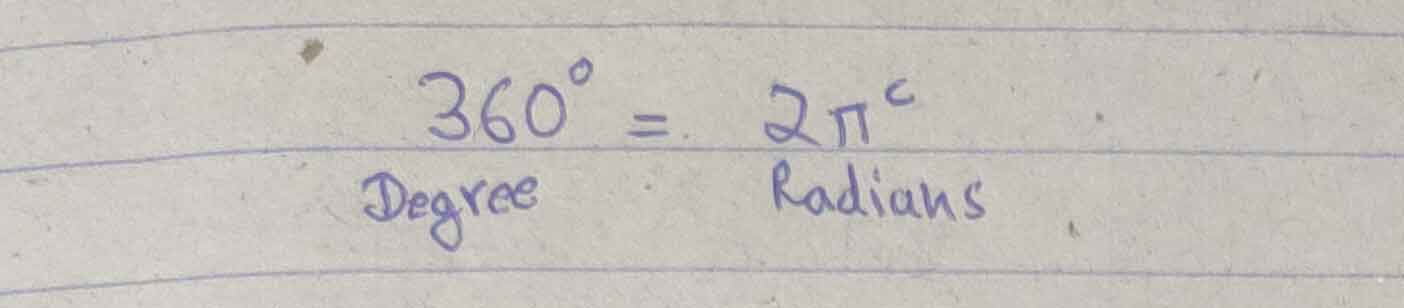 360° = 2πᶜ
Degree Radians